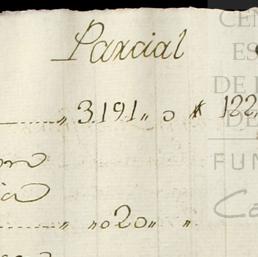 Parcial
3.191,, o $ 122
,, ,, o 2 o ,, ,,
CEN
ES
DE
DE
FUN
Ca